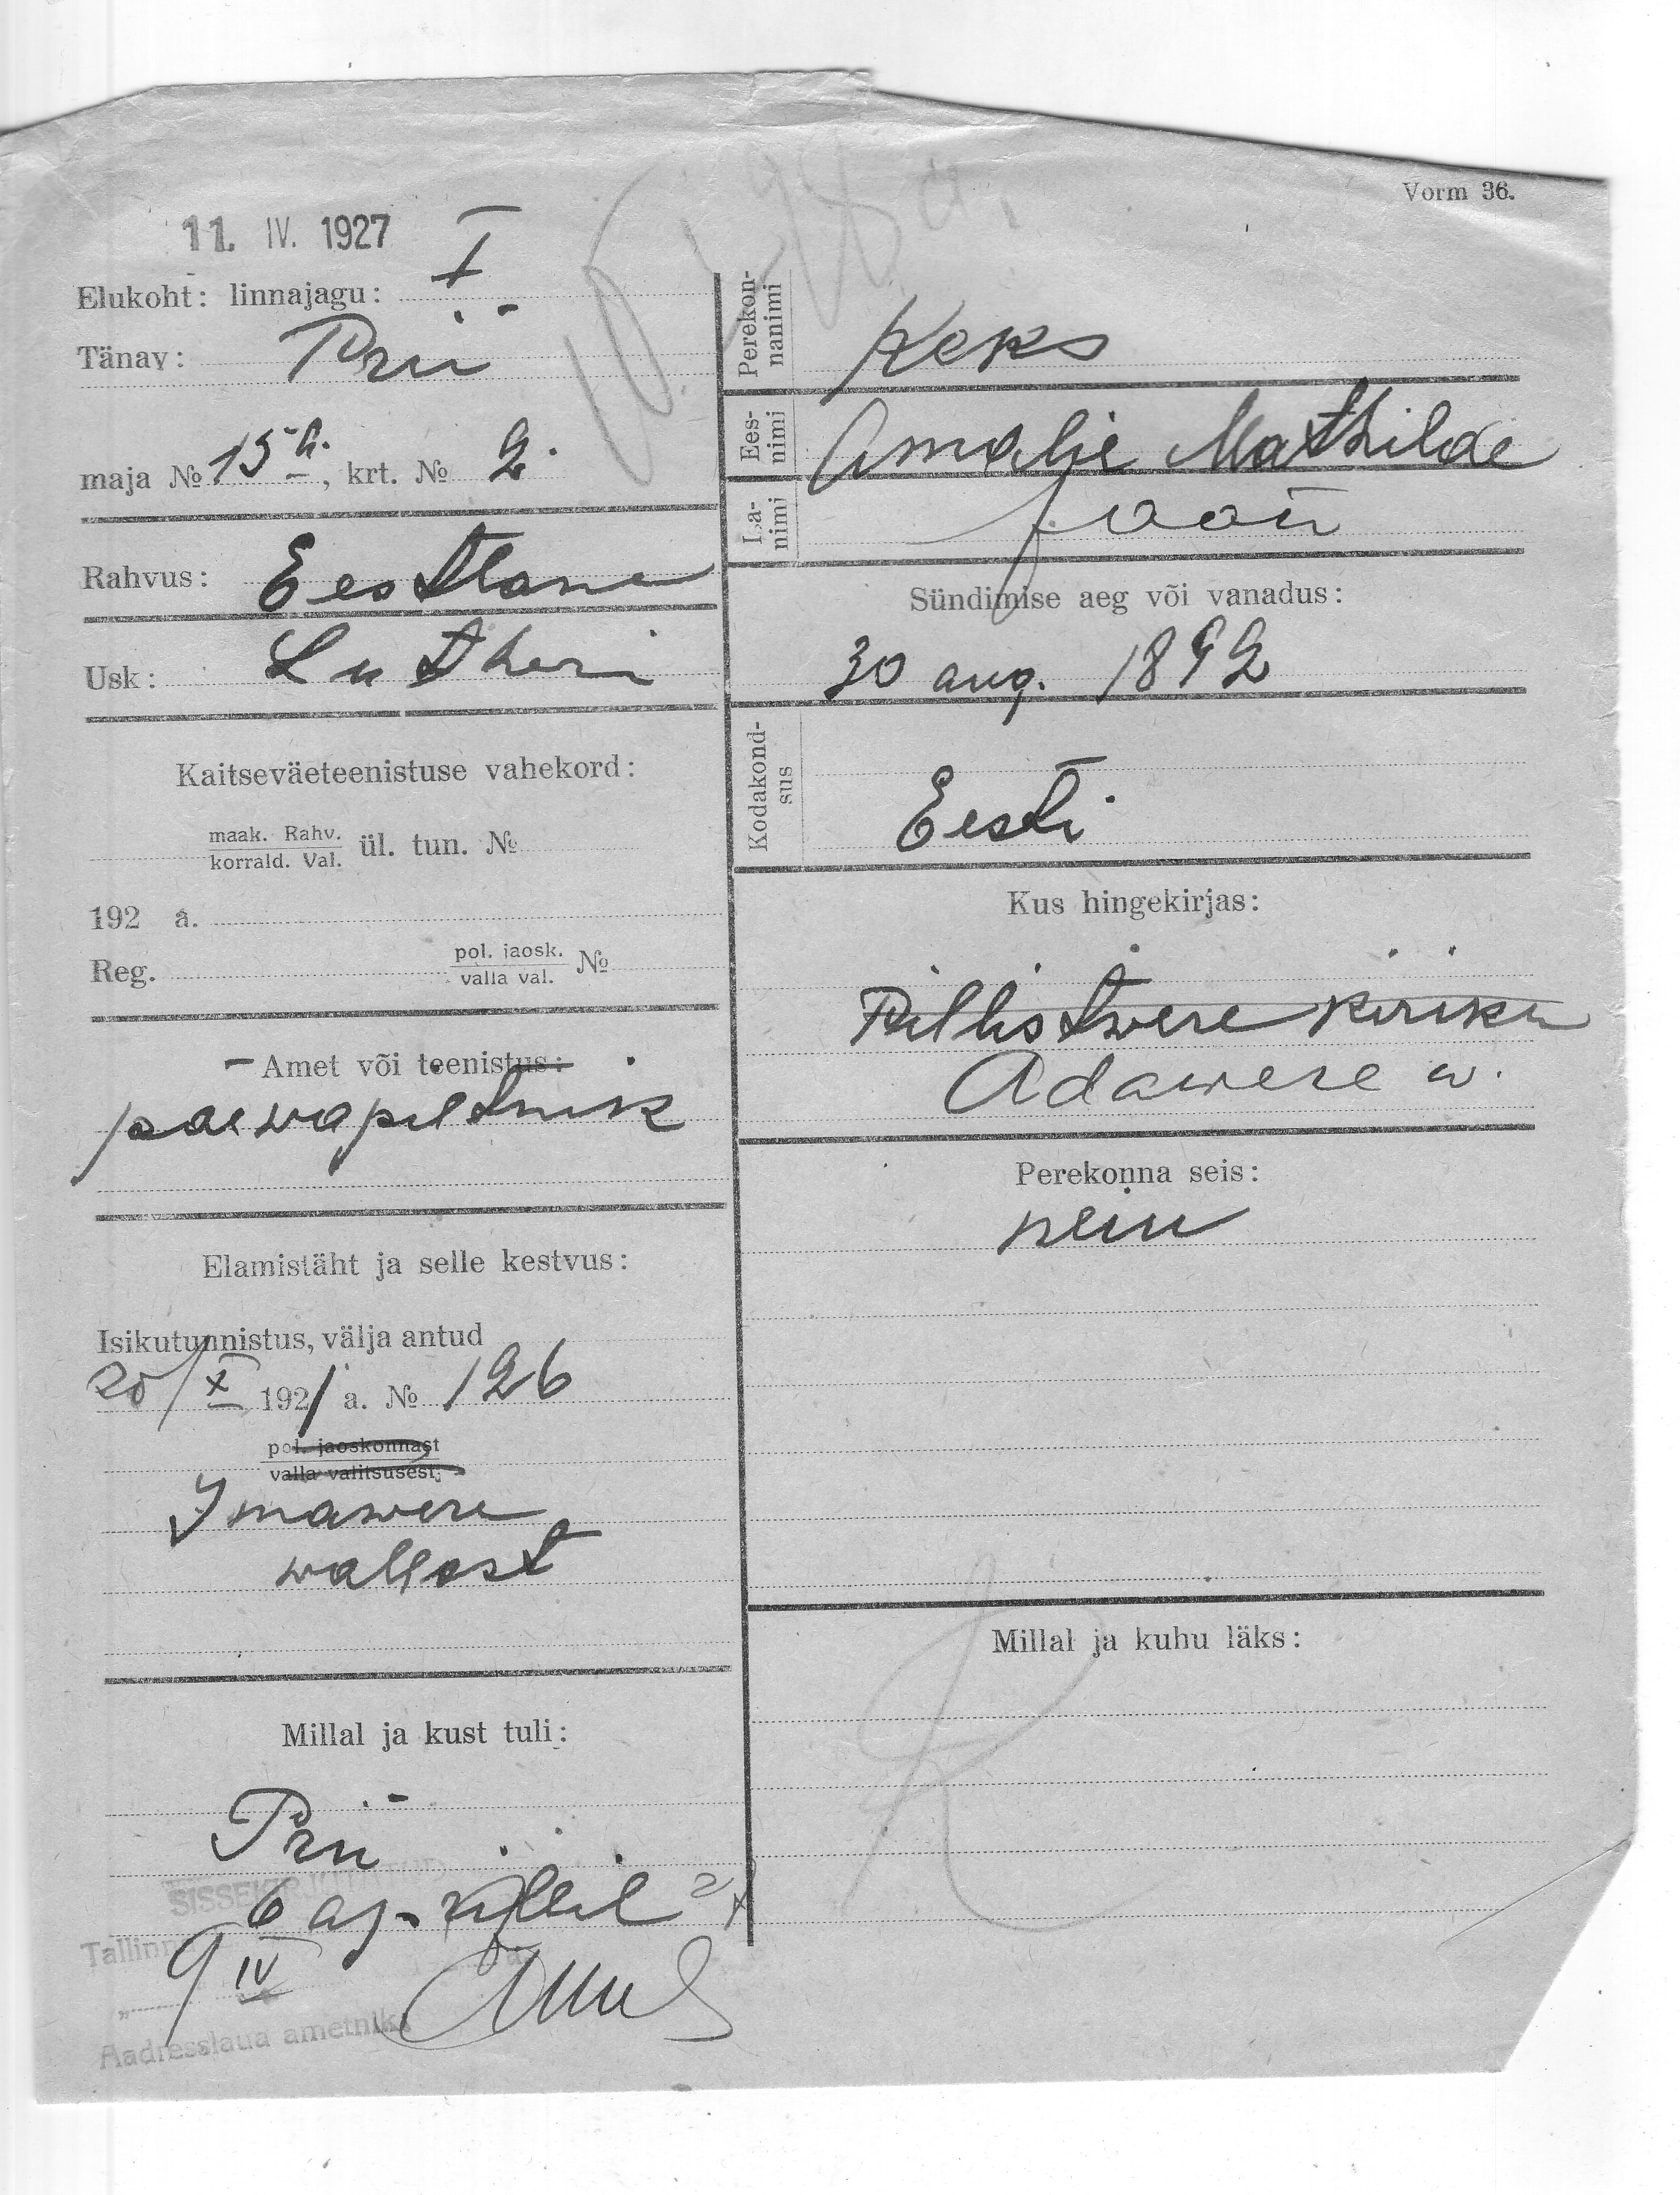 Vorm 36.
11. IV. 1927
Elukoht: linnajagu: I
Tänav: Prii
maja № 15 a., krt. № 2.
Rahvus: Eestlane
Usk: Lutheri
Kaitseväeteenistuse vahekord:
maak. Rahv.
korrald. Val. ül. tun. №
192 a.
Reg. pol. jaosk.
valla val. №
Amet või teenistus:
paewapiltnik
Elamistäht ja selle kestvus:
Isikutunnistus, välja antud
20/X 1921 a. № 126
pol. jaoskonnast
valla valitsusest;
Imawere
wallast
Millal ja kust tuli:
Prii
SISSEKIRJUTATUD
6 aprillil
Tallinn
9 IV
Aadresslaua ametnik
Perekon-
nanimi
Keks
Ees-
nimi
Amalie Mathilde
Isa-
nimi
Jaan
Sündimise aeg või vanadus:
30 aug. 1892
Kodakond-
sus
Eesti
Kus hingekirjas:
Pillistwere kiriku
Adawere w.
Perekonna seis:
neiu
Millal ja kuhu läks: